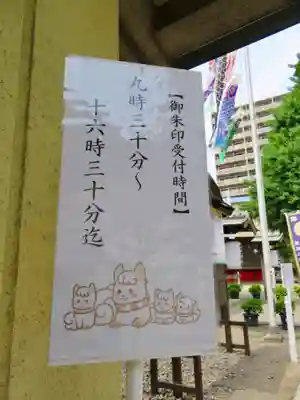 【御朱印受付時間】
九時三十分～
十六時三十分迄